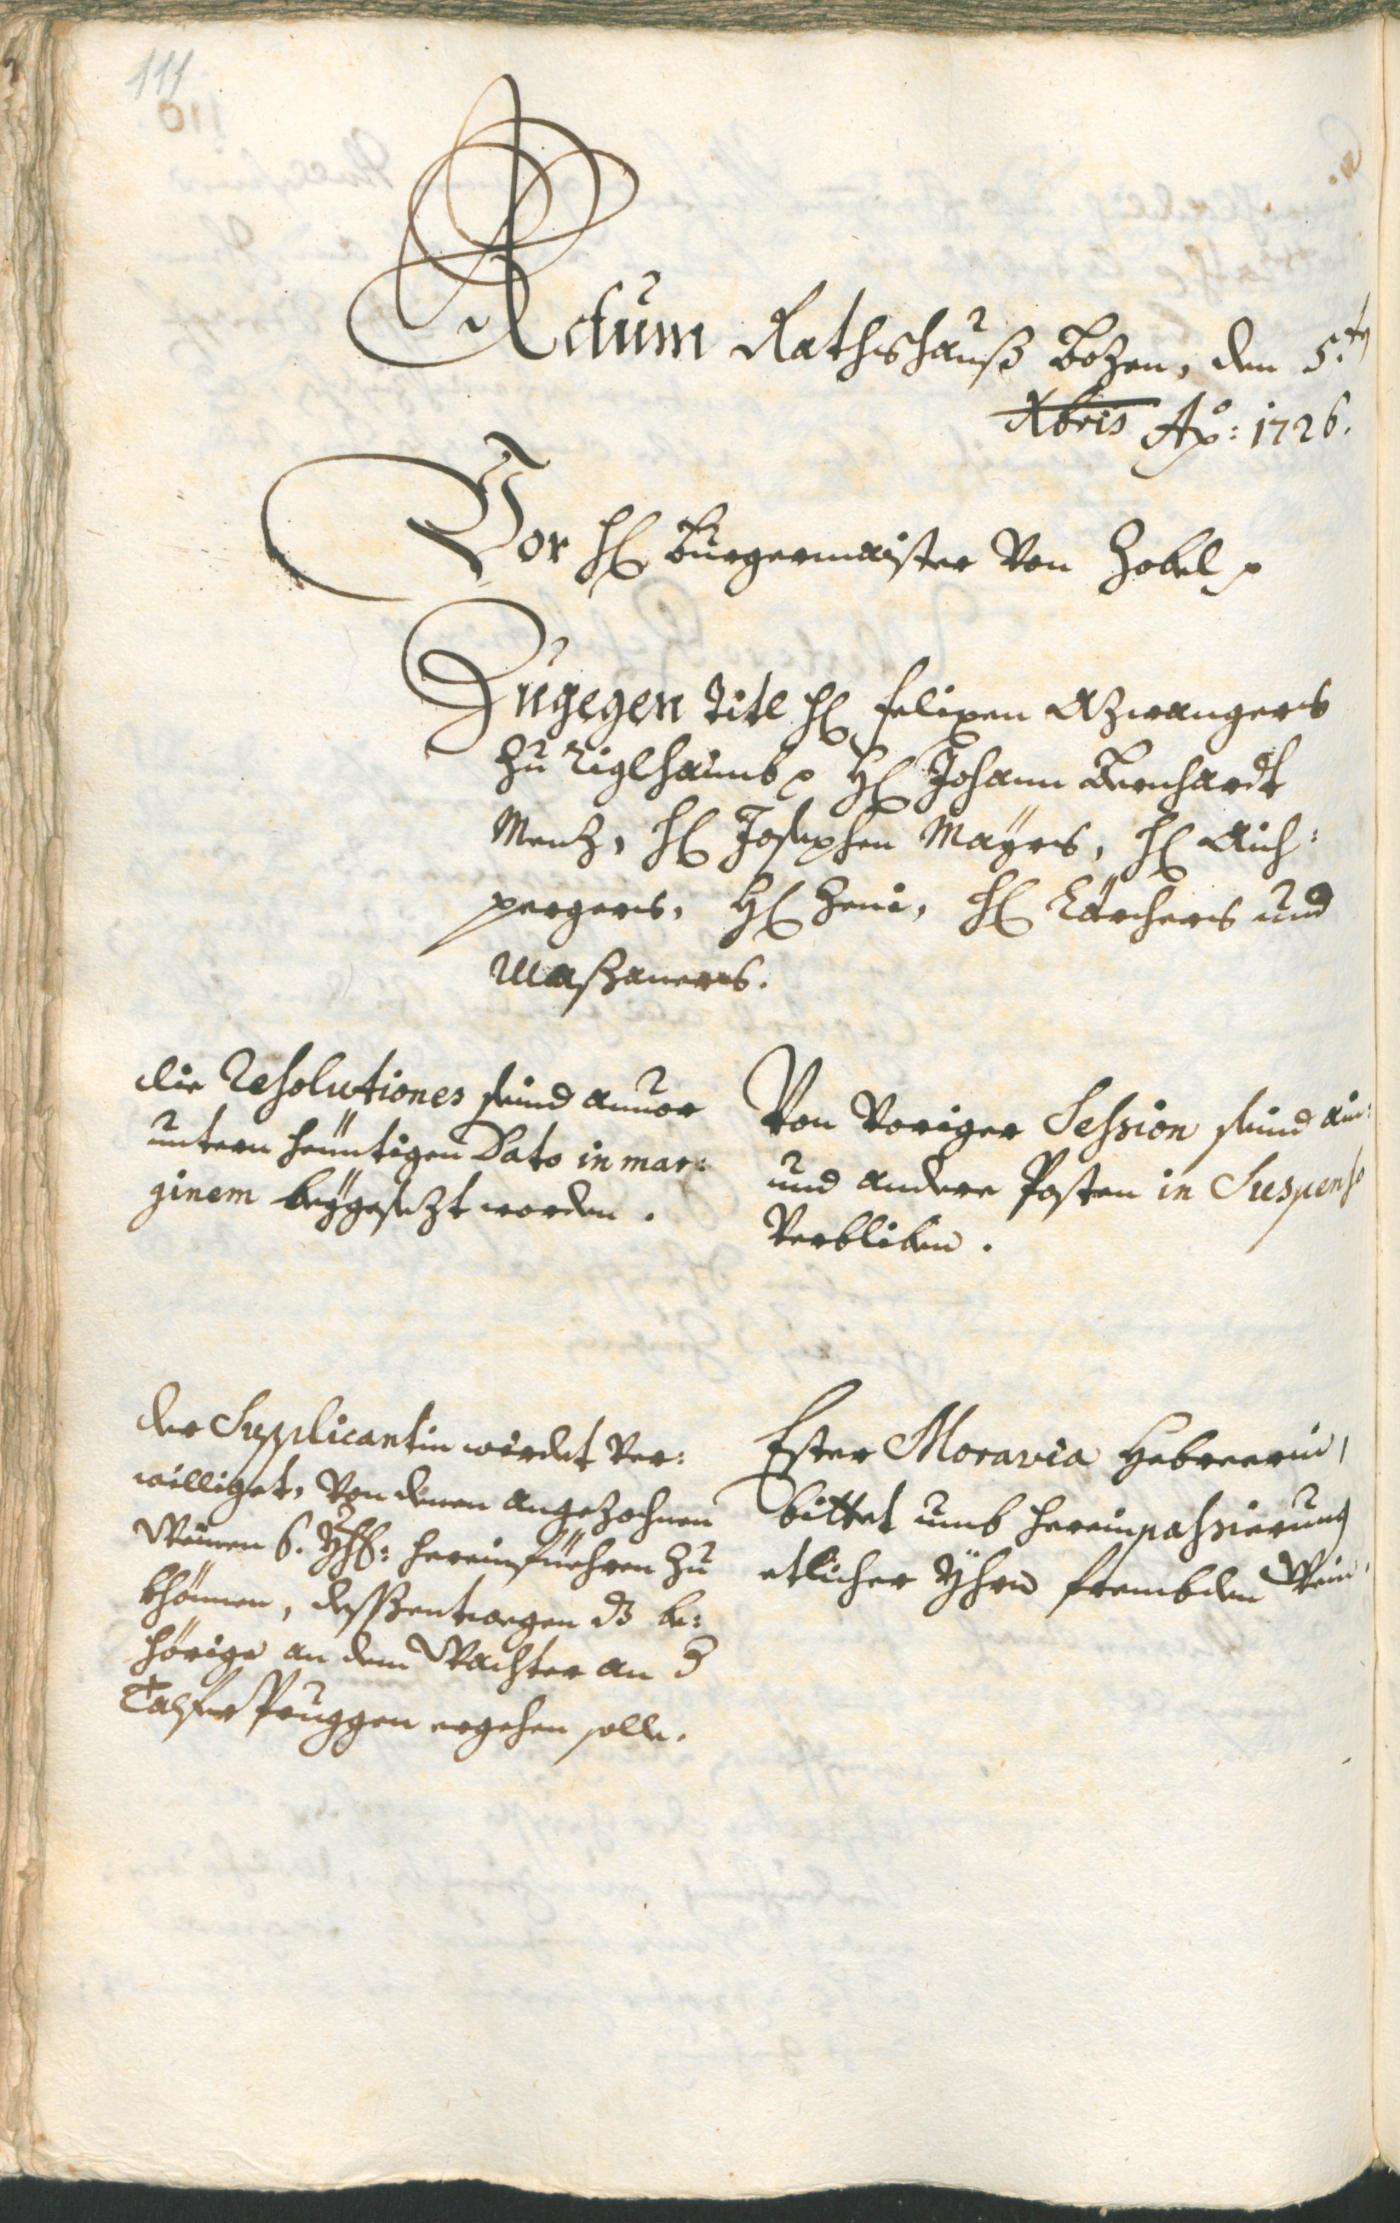 111
Actum Rathshauß Bozen, den 5.ten
Xbris Ao: 1726.
Vor H Burgermaister Von Zobel p
Zugegen Titl H Felixen Azwangers
zu Riglhaimb p H Johann Bernhardt
Menz, H Josephen Mayrs, H Aich:
pergers, H Zeni, H Lärchers und
Maßaners.
die Resolutiones seind anuor
untern heüntigen Dato in mar:
ginem beÿgesezt worden.
Von Voriger Session seind ain:
und andere Posten in Suspenso
Verbliben.
der Supplicantin würdet Ver:
williget, Von denen angezochnen
Weinen 6. Yhr: hereinfüehren zu
khönnen, dessßentwegen dz be:
hörige an dem Wachter an d
Talfer Pruggen ergehen solle.
Ester Moravia Hebreerin,
bittet umb hereinpassierung
etlicher Ÿhrn frembden Wein.